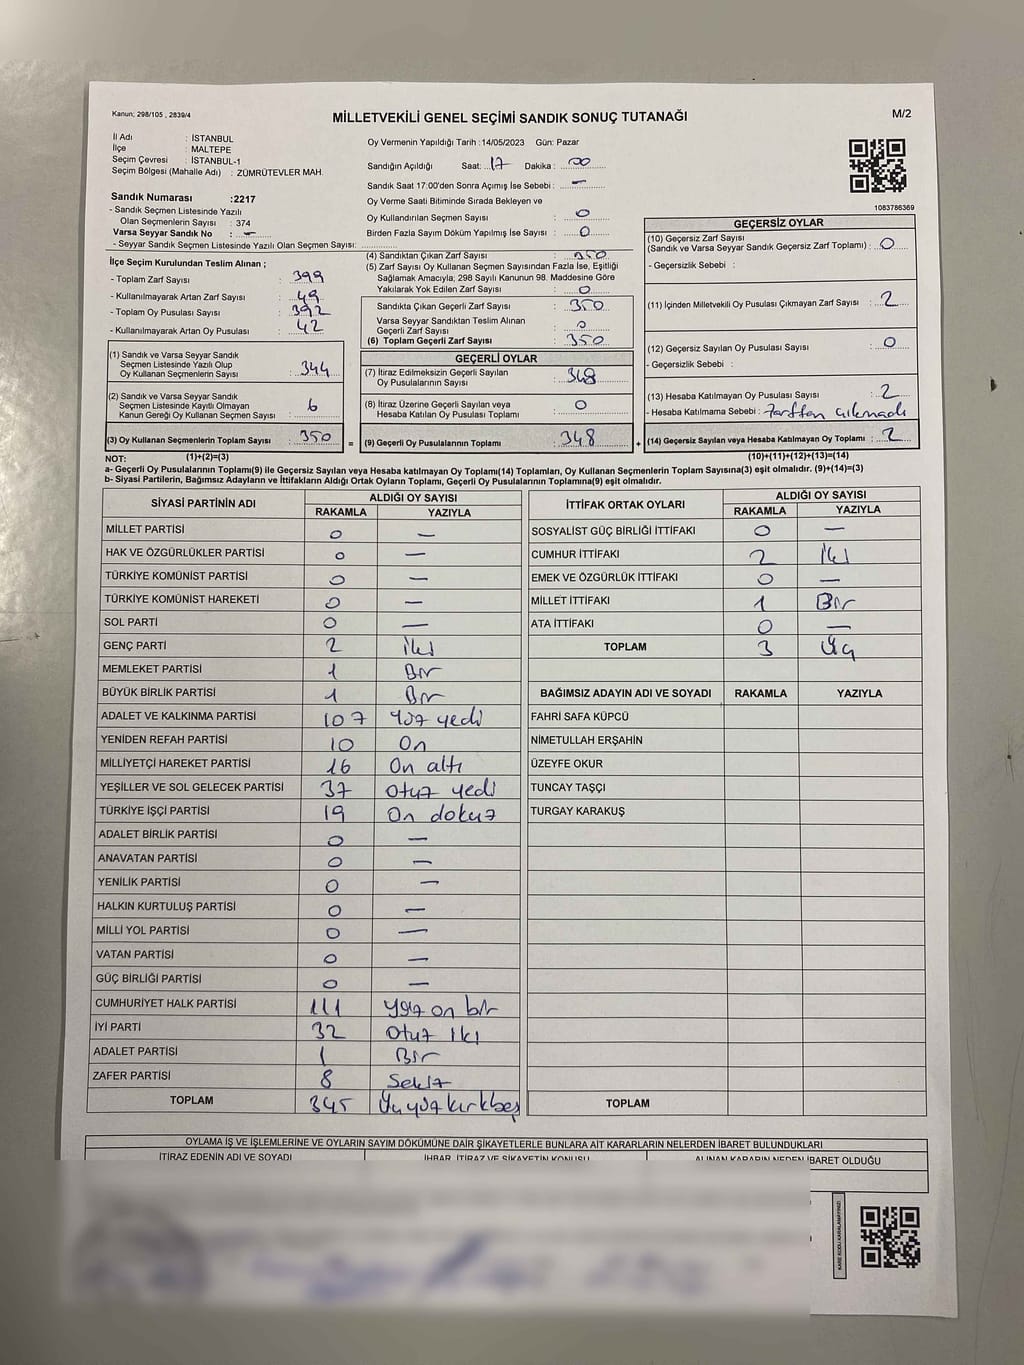 Kanun: 298/105 , 2839/4
MİLLETVEKİLİ GENEL SEÇİMİ SANDIK SONUÇ TUTANAĞI
M/2
İl Adı : İSTANBUL
İlçe : MALTEPE
Seçim Çevresi : İSTANBUL-1
Seçim Bölgesi (Mahalle Adı) : ZÜMRÜTEVLER MAH.
Sandık Numarası :2217
- Sandık Seçmen Listesinde Yazılı
Olan Seçmenlerin Sayısı : 374
Varsa Seyyar Sandık No : -
- Seyyar Sandık Seçmen Listesinde Yazılı Olan Seçmen Sayısı:
Oy Vermenin Yapıldığı Tarih :14/05/2023 Gün: Pazar
Sandığın Açıldığı Saat: 17 Dakika : 00
Sandık Saat 17:00'den Sonra Açımış İse Sebebi : -
Oy Verme Saati Bitiminde Sırada Bekleyen ve
Oy Kullandırılan Seçmen Sayısı : 0
Birden Fazla Sayım Döküm Yapılmış İse Sayısı : 0
1083786369
İlçe Seçim Kurulundan Teslim Alınan ;
- Toplam Zarf Sayısı : 399
- Kullanılmayarak Artan Zarf Sayısı : 49
- Toplam Oy Pusulası Sayısı : 392
- Kullanılmayarak Artan Oy Pusulası : 42
(1) Sandık ve Varsa Seyyar Sandık
Seçmen Listesinde Yazılı Olup
Oy Kullanan Seçmenlerin Sayısı : 344
(2) Sandık ve Varsa Seyyar Sandık
Seçmen Listesinde Kayıtlı Olmayan
Kanun Gereği Oy Kullanan Seçmen Sayısı : 6
(3) Oy Kullanan Seçmenlerin Toplam Sayısı : 350 =
(4) Sandıktan Çıkan Zarf Sayısı : 350
(5) Zarf Sayısı Oy Kullanan Seçmen Sayısından Fazla İse, Eşitliği
Sağlamak Amacıyla; 298 Sayılı Kanunun 98. Maddesine Göre
Yakılarak Yok Edilen Zarf Sayısı : 0
Sandıkta Çıkan Geçerli Zarf Sayısı : 350
Varsa Seyyar Sandıktan Teslim Alınan
Geçerli Zarf Sayısı : 0
(6) Toplam Geçerli Zarf Sayısı : 350
GEÇERLİ OYLAR
(7) İtiraz Edilmeksizin Geçerli Sayılan
Oy Pusulalarının Sayısı : 348
(8) İtiraz Üzerine Geçerli Sayılan veya
Hesaba Katılan Oy Pusulası Toplamı : 0
(9) Geçerli Oy Pusulalarının Toplamı : 348 +
GEÇERSİZ OYLAR
(10) Geçersiz Zarf Sayısı
(Sandık ve Varsa Seyyar Sandık Geçersiz Zarf Toplamı) : 0
- Geçersizlik Sebebi :
(11) İçinden Milletvekili Oy Pusulası Çıkmayan Zarf Sayısı : 2
(12) Geçersiz Sayılan Oy Pusulası Sayısı : 0
- Geçersizlik Sebebi :
(13) Hesaba Katılmayan Oy Pusulası Sayısı : 2
- Hesaba Katılmama Sebebi : Zarftan çıkmadı
(14) Geçersiz Sayılan veya Hesaba Katılmayan Oy Toplamı : 2
NOT: (1)+(2)=(3) (10)+(11)+(12)+(13)=(14)
a- Geçerli Oy Pusulalarının Toplamı(9) ile Geçersiz Sayılan veya Hesaba katılmayan Oy Toplamı(14) Toplamları, Oy Kullanan Seçmenlerin Toplam Sayısına(3) eşit olmalıdır. (9)+(14)=(3)
b- Siyasi Partilerin, Bağımsız Adayların ve İttifakların Aldığı Ortak Oyların Toplamı, Geçerli Oy Pusulalarının Toplamına(9) eşit olmalıdır.
SİYASİ PARTİNİN ADI ALDIĞI OY SAYISI
RAKAMLA YAZIYLA
MİLLET PARTİSİ 0 -
HAK VE ÖZGÜRLÜKLER PARTİSİ 0 -
TÜRKİYE KOMÜNİST PARTİSİ 0 -
TÜRKİYE KOMÜNİST HAREKETİ 0 -
SOL PARTİ 0 -
GENÇ PARTİ 2 İki
MEMLEKET PARTİSİ 1 Bir
BÜYÜK BİRLİK PARTİSİ 1 Bir
ADALET VE KALKINMA PARTİSİ 107 Yüz yedi
YENİDEN REFAH PARTİSİ 10 On
MİLLİYETÇİ HAREKET PARTİSİ 16 On altı
YEŞİLLER VE SOL GELECEK PARTİSİ 37 Otuz yedi
TÜRKİYE İŞÇİ PARTİSİ 19 On dokuz
ADALET BİRLİK PARTİSİ 0 -
ANAVATAN PARTİSİ 0 -
YENİLİK PARTİSİ 0 -
HALKIN KURTULUŞ PARTİSİ 0 -
MİLLİ YOL PARTİSİ 0 -
VATAN PARTİSİ 0 -
GÜÇ BİRLİĞİ PARTİSİ 0 -
CUMHURİYET HALK PARTİSİ 111 Yüz on bir
İYİ PARTİ 32 Otuz iki
ADALET PARTİSİ 1 Bir
ZAFER PARTİSİ 8 Sekiz
TOPLAM 345 Üçyüz kırkbeş
İTTİFAK ORTAK OYLARI ALDIĞI OY SAYISI
RAKAMLA YAZIYLA
SOSYALİST GÜÇ BİRLİĞİ İTTİFAKI 0 -
CUMHUR İTTİFAKI 2 İki
EMEK VE ÖZGÜRLÜK İTTİFAKI 0 -
MİLLET İTTİFAKI 1 Bir
ATA İTTİFAKI 0 -
TOPLAM 3 Üç
BAĞIMSIZ ADAYIN ADI VE SOYADI RAKAMLA YAZIYLA
FAHRİ SAFA KÜPCÜ
NİMETULLAH ERŞAHİN
ÜZEYFE OKUR
TUNCAY TAŞÇI
TURGAY KARAKUŞ
TOPLAM
OYLAMA İŞ VE İŞLEMLERİNE VE OYLARIN SAYIM DÖKÜMÜNE DAİR ŞİKAYETLERLE BUNLARA AİT KARARLARIN NELERDEN İBARET BULUNDUKLARI
İTİRAZ EDENİN ADI VE SOYADI İHBAR, İTİRAZ VE ŞİKAYETİN KONUSU ALINAN KARARIN NEDEN İBARET OLDUĞU